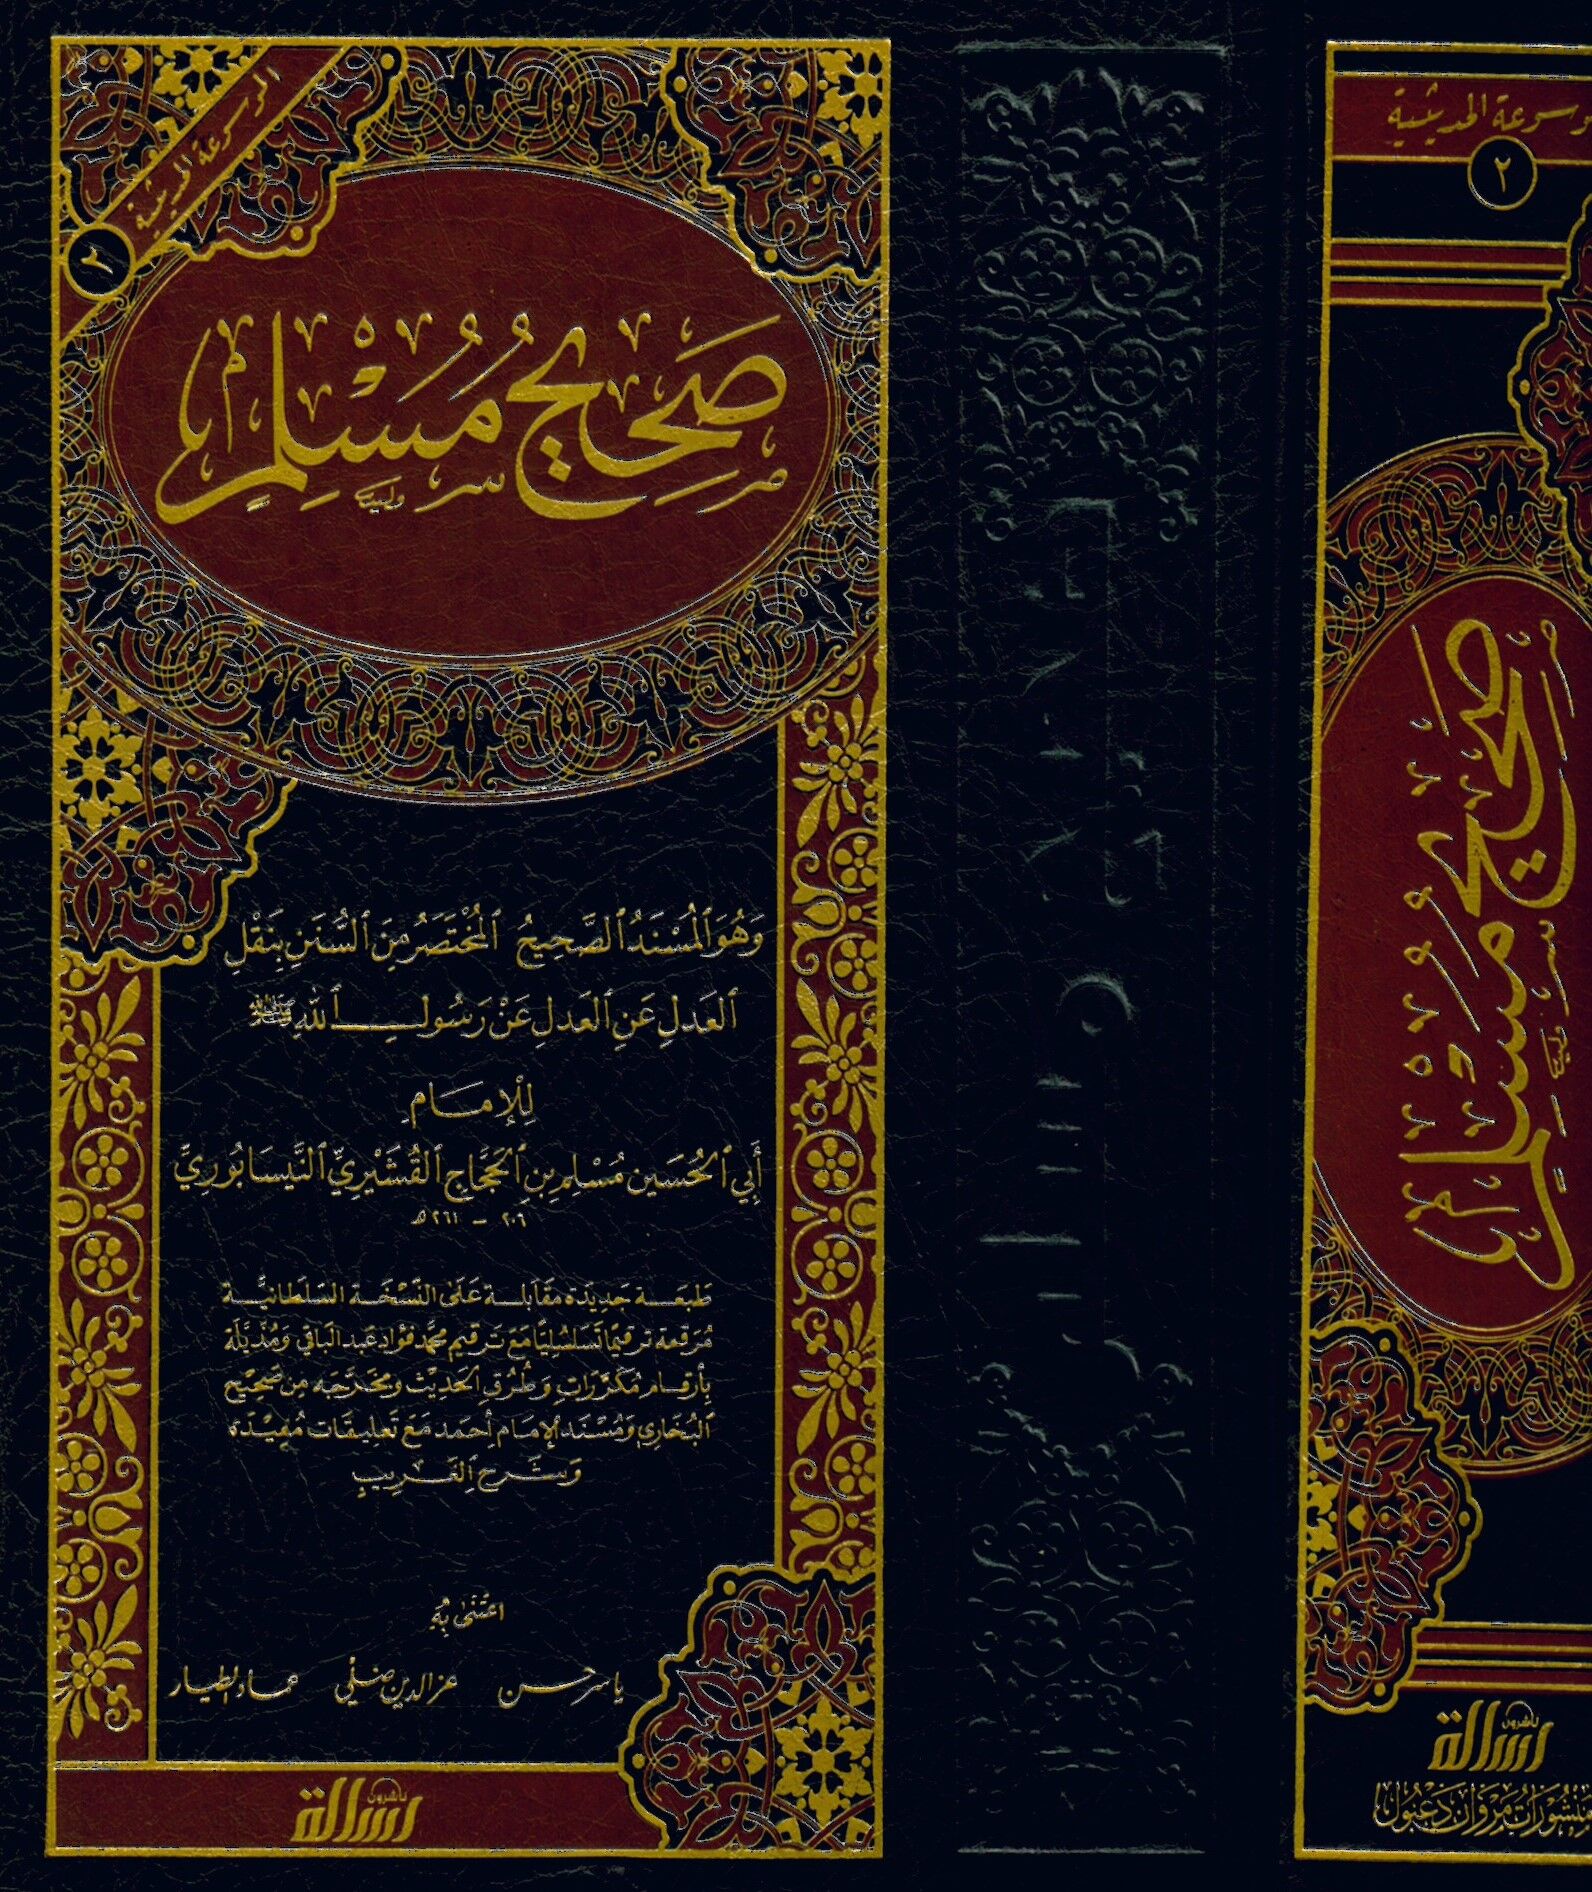 الموسوعة الحديثية
٢
صَحِيحُ مُسْلِمٍ
وَهُوَ ٱلْمُسْنَدُ ٱلصَّحِيحُ ٱلْمُخْتَصَرُ مِنَ ٱلسُّنَنِ بِنَقْلِ
ٱلعَدلِ عَنِ ٱلعَدلِ عَنْ رَسُولِ ٱللهِ ﷺ
لِلْإِمَامِ
أَبِي ٱلْحُسَيْنِ مُسْلِمِ بنِ ٱلْحَجَّاجِ ٱلْقُشَيْرِيِّ ٱلنَّيْسَابُورِيِّ
٢٠٦ – ٢٦١ هـ
طَبعَة جَديدَة مقَابلة عَلىٰ النّسخَة السّلطانيَّة
مُرَقّمة ترقيمًا تسَلسُليًّا مَع تَرقيم محمَّد فؤاد عَبد البَاقي وَمُذيَّلة
بأرقام مُكرّراتِ وَطُرُقِ الحَديْث ومخَرّجَه مِن صَحِيْح
البُخَاري وَمُسْنَد الإمَام أحمَد مَعَ تَعليقَات مُفِيْدَه
وَشَرح الغَريبِ
اعتَنىٰ بهِ
ياسر حسن عز الدين ضلي عماد الطيار
رسالة ناشرون
الموسوعة الحديثية
٢
صَحِيحُ مُسْلِمٍ
رسالة ناشرون
منشورات مَروان دعبُول